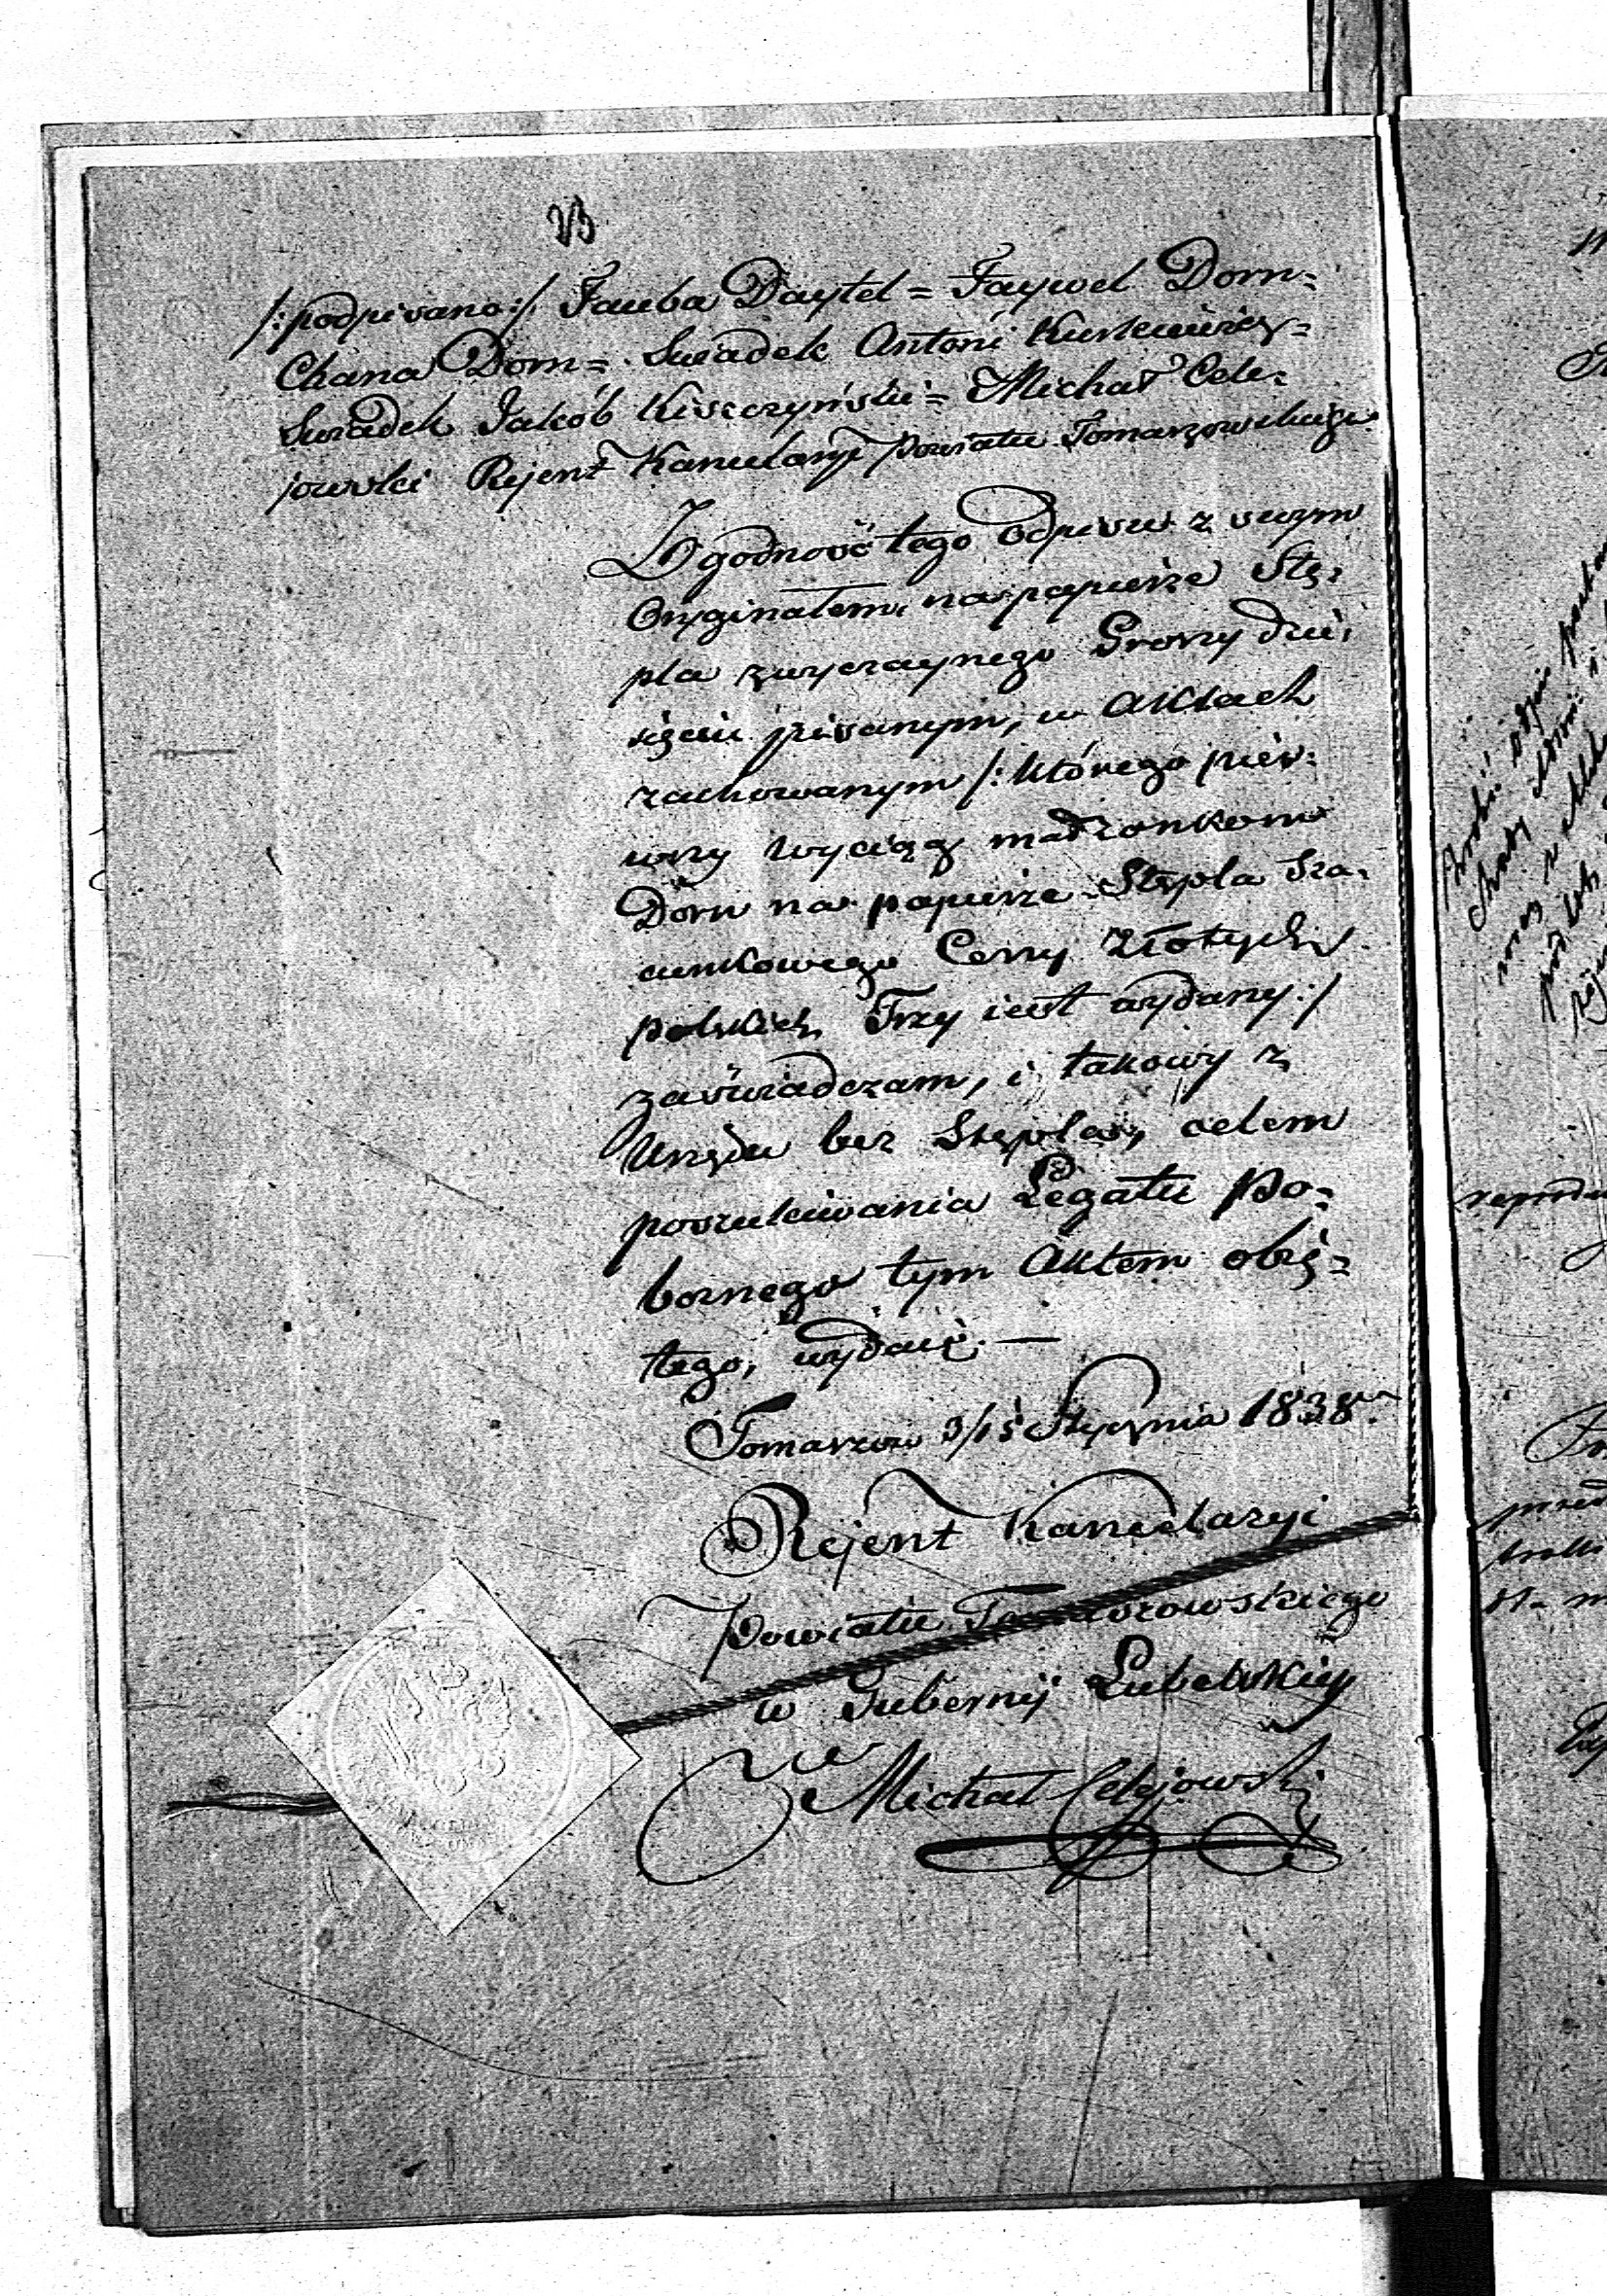 23
/: podpisano :/ Tauba Daytel = Faywel Dorn =
Chana Dorn = Swiadek Antoni Kurkiewicz =
Swiadek Jakób Kiszczyński = Michał Cele=
jowski Rejent Kancelaryi Powiatu Tomaszowskiego
Zgodność tego Odpisu z swym
Oryginałem, na papierze Stę=
pla zwyczaynego Groszy dzie=
sięciu pisanym, w Aktach
zachowanym /: którego pier=
wszy Wyciąg małżonkom
Dorn na papierze Stępla Sza=
cunkowego Ceny Złotych
polskich Trzy iest wydany :/
zaświadczam, i takowy z
Urzędu bez Stępla, celem
poszukiwania Legatu Po=
bożnego tym Aktem obię=
tego, wydaię. —
Tomaszow 3/15 Stycznia 1838 r.
Rejent Kancelaryi
Powiatu Tomaszowskiego
w Gubernij Lubelskiey
Michał Celejowski